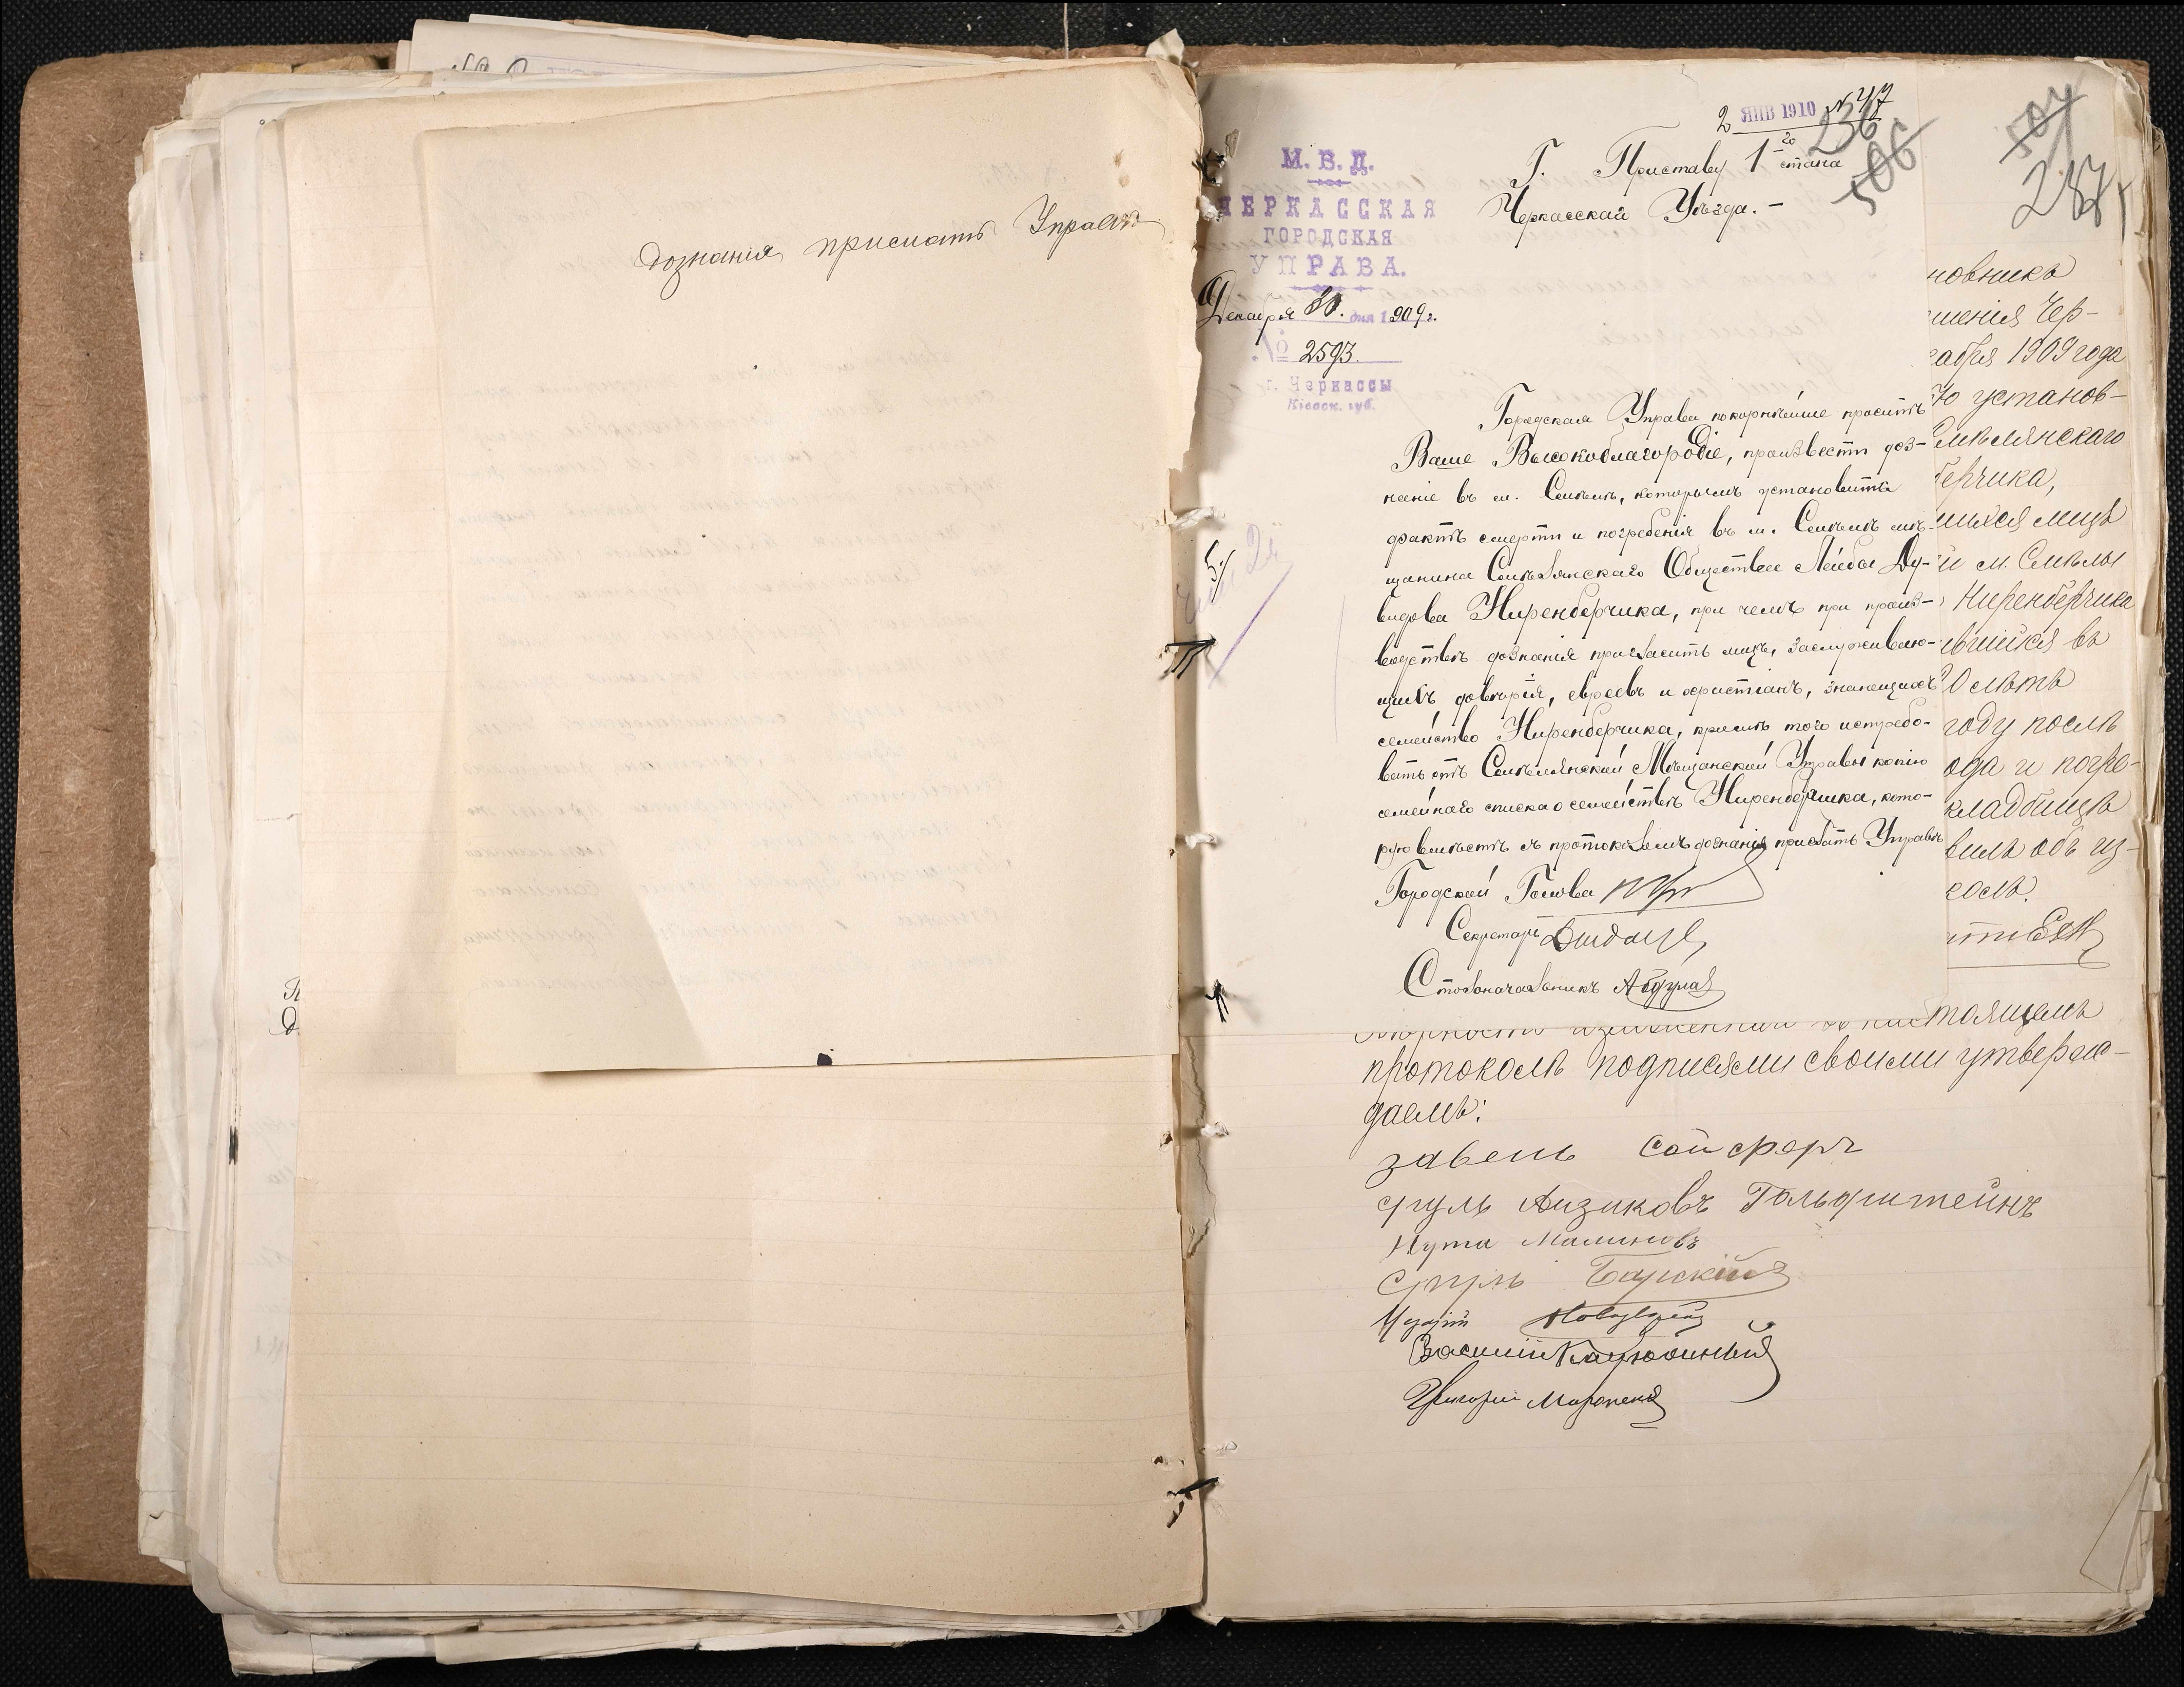 дознанія, прислать Управѣ
2 ЯНВ 1910 № 47
236
506
504
287
М. В. Д.
ЧЕРКАССКАЯ
ГОРОДСКАЯ
УПРАВА.
Декабря 30. дня 1909 г.
№ 2593.
г. Черкассы
Кіевск. губ.
Г. Приставу 1го стана
Черкасскаго Уѣзда. –
Городская Управа покорнѣйше проситъ
Ваше Высокоблагородіе, произвести доз-
наніе въ м. Смѣлѣ, которымъ установить
фактъ смерти и погребенія въ м. Смѣлѣ мѣ-
щанина Смѣлянскаго Общества Лейбы Ду-
видова Ниренберчика, при чемъ при произ-
водствѣ дознанія пригласить лицъ, заслуживаю-
щихъ довѣрія, евреевъ и христіанъ, знающихъ
семейство Ниренберчика, кромѣ того истребо-
вать отъ Смѣлянской Мѣщанской Управы копію
семейнаго списка о семействѣ Ниренберчика, кото-
рую вмѣстѣ съ протоколомъ дознанія прислать Управѣ
Городской Голова
Секретарь
Столоначальникъ
новникъ
шенія Чер-
кабря 1909 года
установ-
Смѣлянскаго
берчика,
шихся лицъ
и м. Смѣлы
Ниренберчика
вшійся въ
0 лѣтъ
году послѣ
ода и погре-
кладбищѣ
вилъ объ из-
колъ.
настоящемъ
протоколѣ подписями своими утверж-
даемъ:
Сруль Аизиковъ Гольдштейнъ
Нута Малиновъ
Сруль Барскій
Василій
Григорій